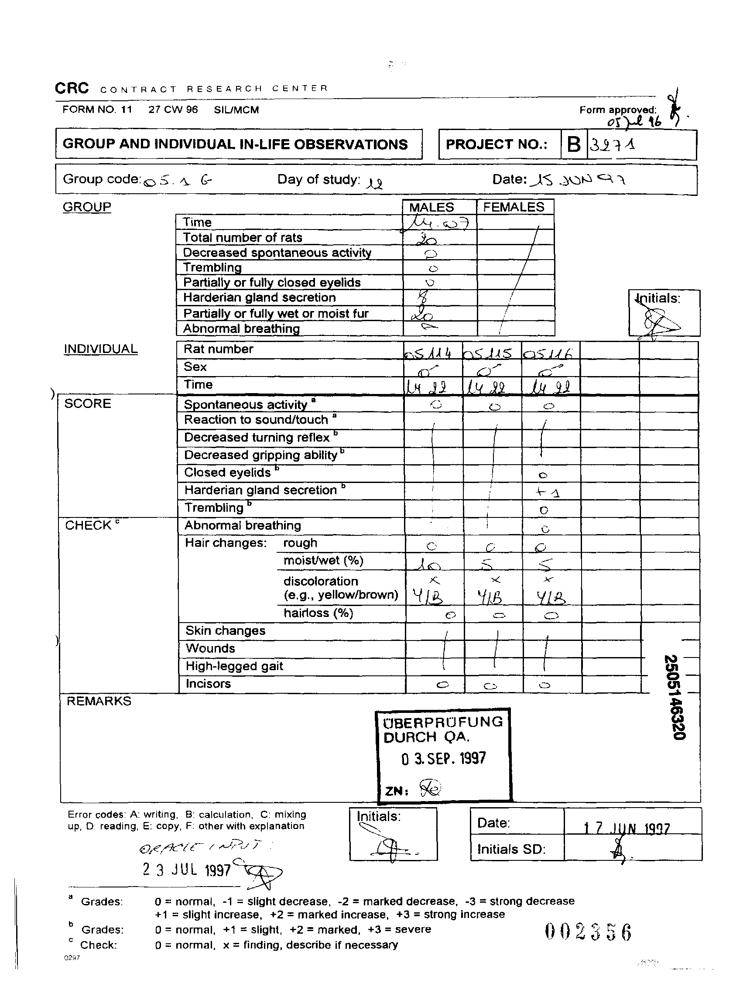 CRC CONTRACT RESEARCH CENTER
FORM NO. 11 27 CW 96 SIL/MCM Form approved:
05 Jul 96
GROUP AND INDIVIDUAL IN-LIFE OBSERVATIONS PROJECT NO.: B 3271
Group code: 05.1 G Day of study: 12 Date: 15 JUN 97
GROUP MALES FEMALES
Time 14.07
Total number of rats 20
Decreased spontaneous activity 0
Trembling 0
Partially or fully closed eyelids 0
Harderian gland secretion 8 Initials:
Partially or fully wet or moist fur 20
Abnormal breathing 0
INDIVIDUAL Rat number 05114 05115 05116
Sex ♂ ♂ ♂
Time 14 22 14 22 14 22
SCORE Spontaneous activity a 0 0 0
Reaction to sound/touch a
Decreased turning reflex b
Decreased gripping ability b
Closed eyelids b 0
Harderian gland secretion b +1
Trembling b 0
CHECK c Abnormal breathing 0
Hair changes: rough 0 0 0
moist/wet (%) 10 5 5
discoloration x x x
(e.g., yellow/brown) Y/B Y/B Y/B
hairloss (%) 0 0 0
Skin changes
Wounds
High-legged gait
Incisors 0 0 0
2505146320
REMARKS
ÜBERPRÜFUNG
DURCH QA.
03. SEP. 1997
ZN:
Error codes: A: writing, B: calculation, C: mixing
up, D: reading, E: copy, F: other with explanation
Initials:
Date: 17 JUN 1997
Initials SD:
ORACLE INPUT:
23 JUL 1997
a Grades: 0 = normal, -1 = slight decrease, -2 = marked decrease, -3 = strong decrease
+1 = slight increase, +2 = marked increase, +3 = strong increase
b Grades: 0 = normal, +1 = slight, +2 = marked, +3 = severe
c Check: 0 = normal, x = finding, describe if necessary
002356
0297